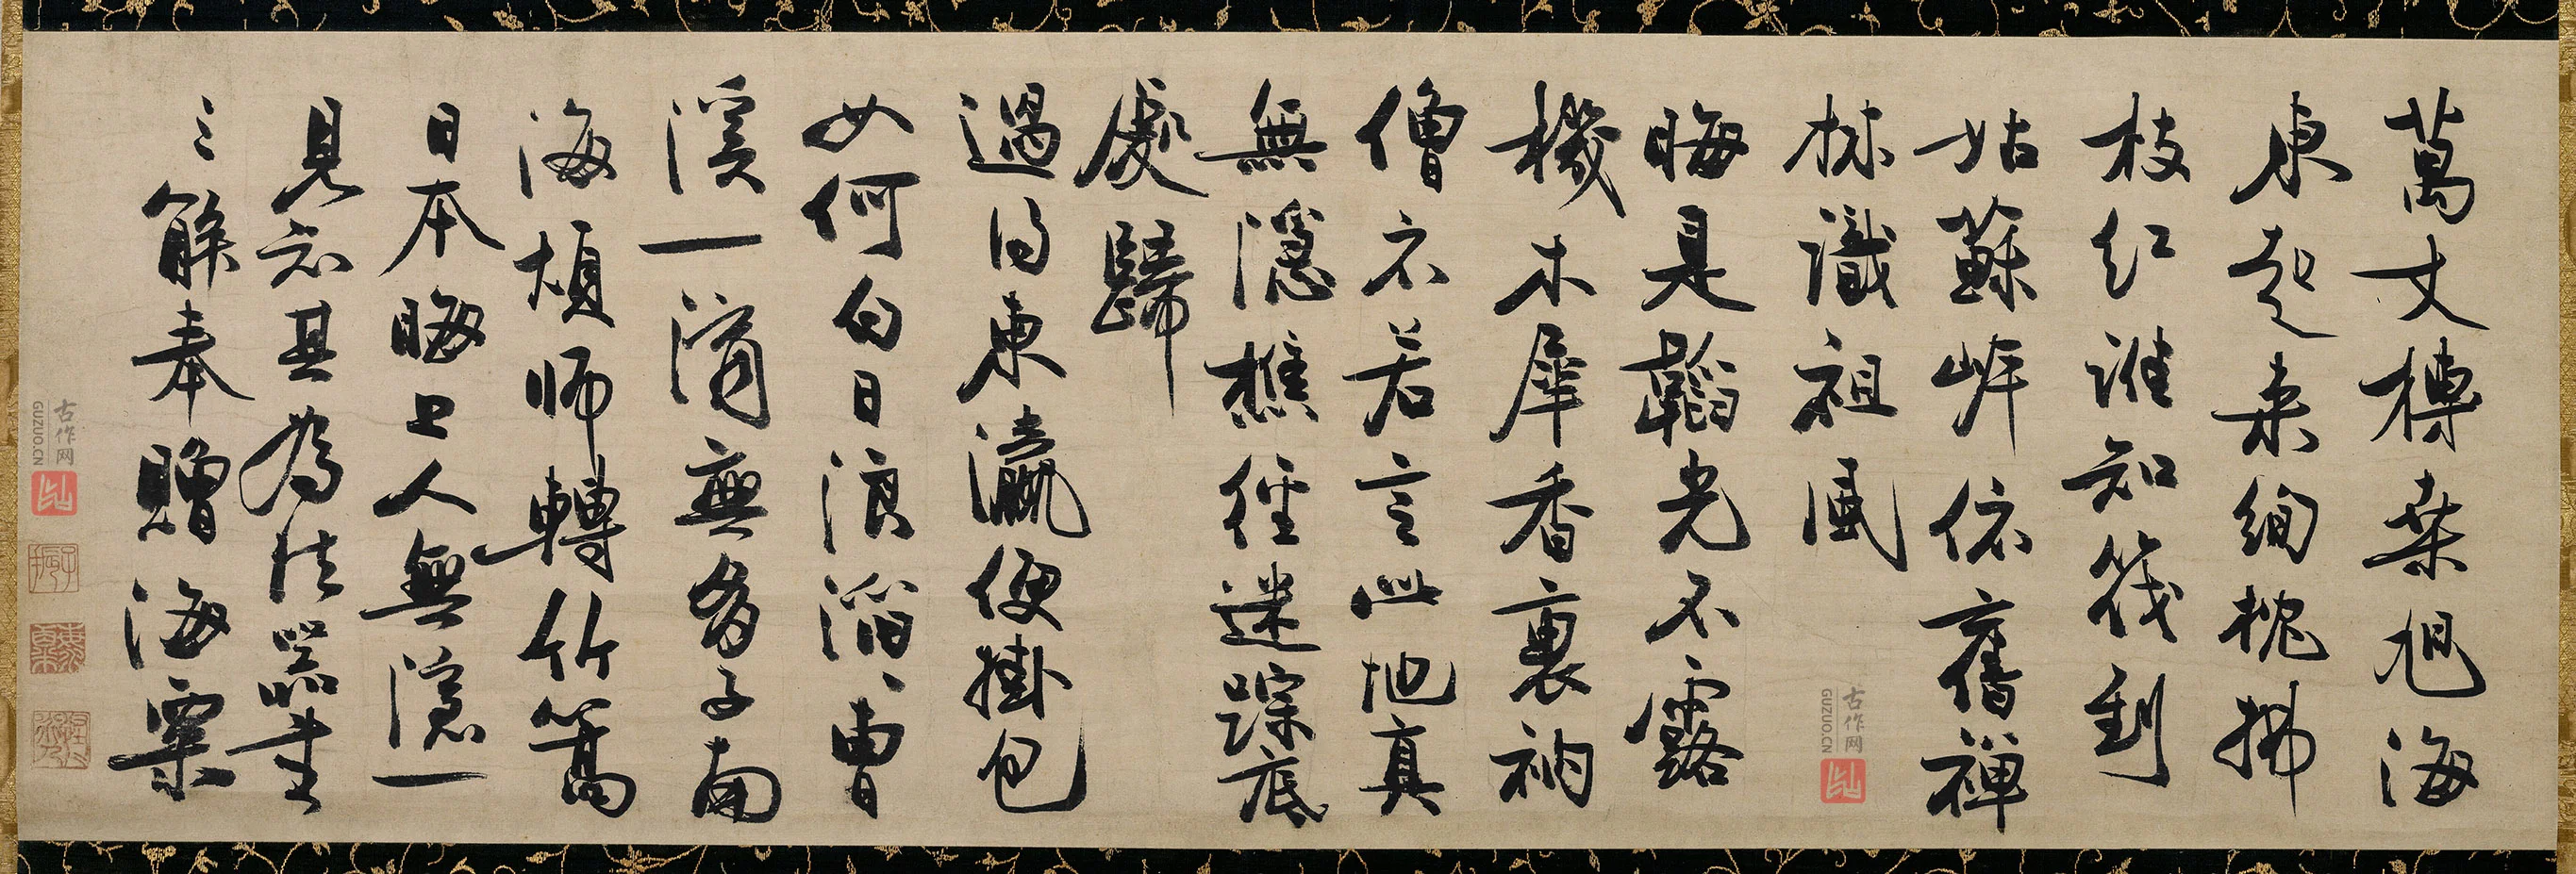 萬丈榑桒旭海
東起来絢枕拂
枝紅誰知筏到
姑蘇岸依舊禅
林識祖風
晦是韜光不露
機木犀香裏衲
僧衣若言此地真
無隱樵徑迷蹤底
處歸
過得東瀛便掛包
如何白日浪滔〻曹
溪一滴無多子南
海煩師轉竹篙
日本晦上人無隱一
見知其為法器書
三解奉贈海粟
古作网
GUZUO.CN
古作网
GUZUO.CN